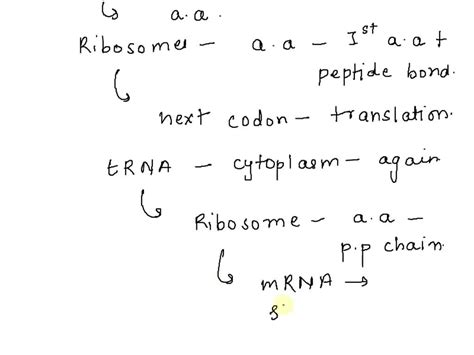 ↳ a.a.
Ribosomes – a.a – Iˢᵗ a.a +
peptide bond.
↳ next codon – translation.
tRNA – cytoplasm – again
↳ Ribosome – a.a –
p.p chain.
↳ mRNA →
s